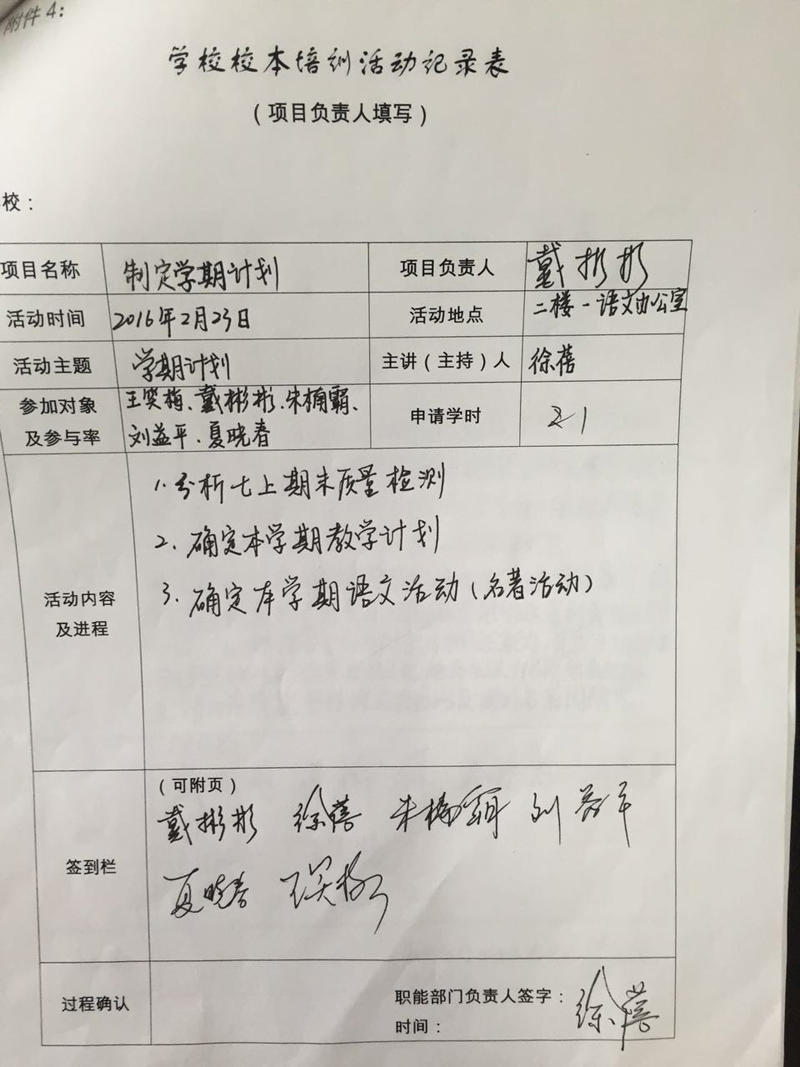 附件4：
学校校本培训活动记录表
（项目负责人填写）
校：
项目名称 制定学期计划 项目负责人 戴彬彬
活动时间 2016年2月23日 活动地点 二楼-语文办公室
活动主题 学期计划 主讲（主持）人 徐蓓
参加对象及参与率 王笑梅、戴彬彬、朱楠霸、
刘益平、夏晓春
申请学时
活动内容及进程
1.分析七上期末质量检测
2.确定本学期教学计划
3.确定本学期语文活动（名著活动）
签到栏
（可附页）
戴彬彬 徐蓓 朱楠 刘益平
夏晓春 王笑梅
过程确认
职能部门负责人签字：徐蓓
时间：